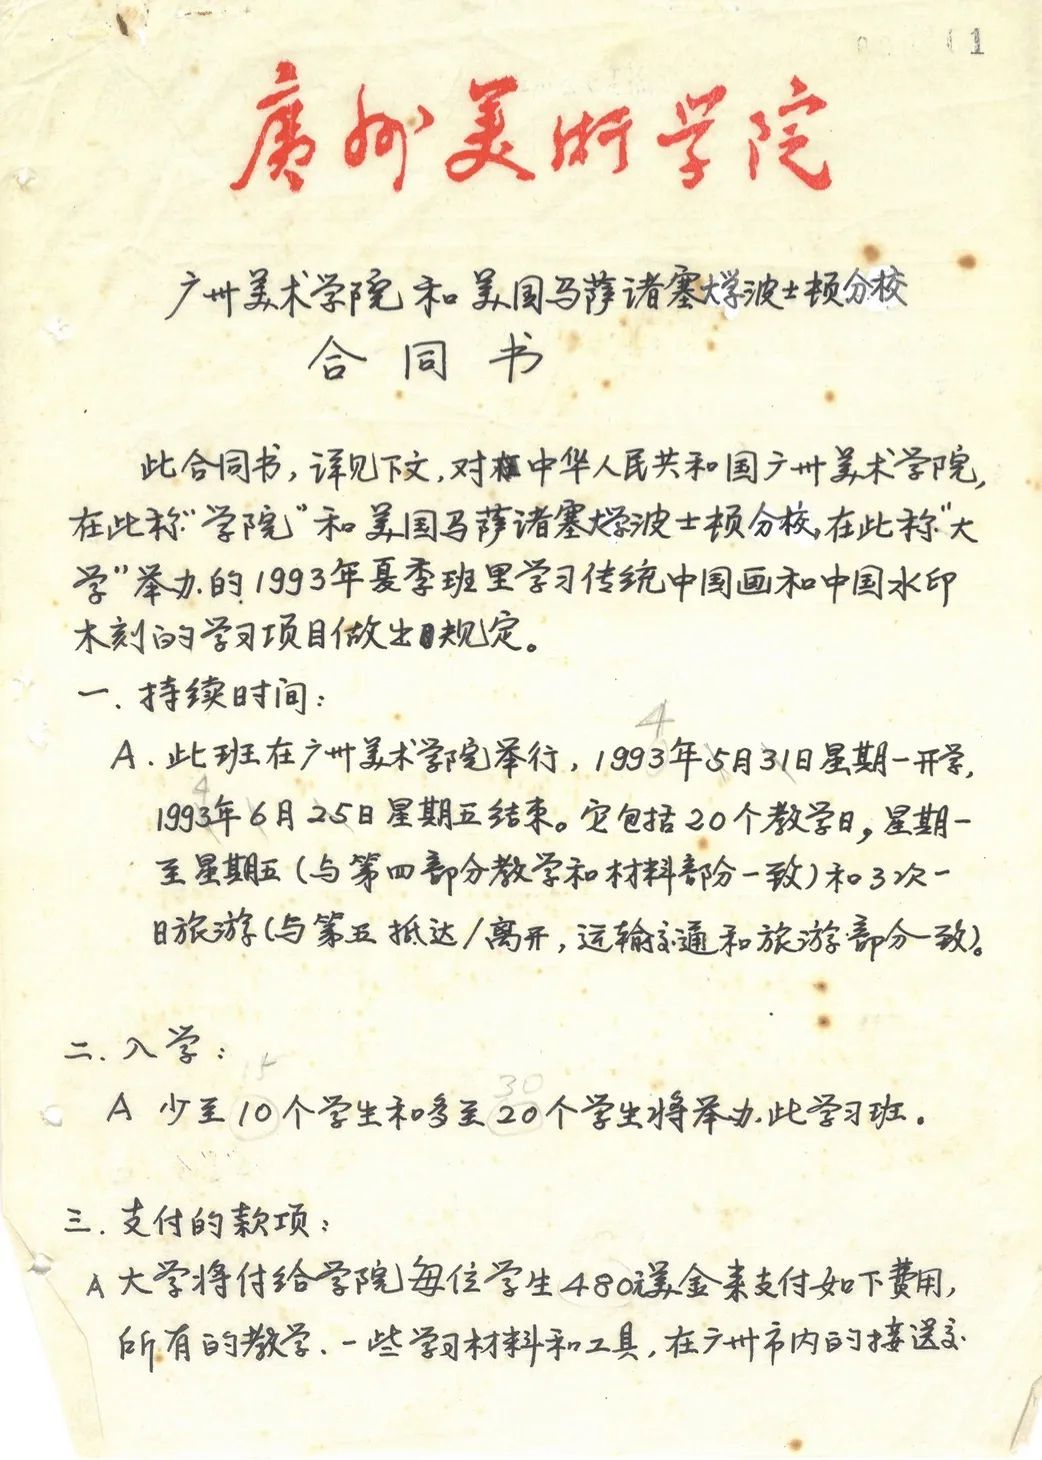 1
廣州美術学院
广州美术学院和美国马萨诸塞大学波士顿分校
合同书
此合同书，详见下文，对在中华人民共和国广州美术学院，
在此称"学院"和美国马萨诸塞大学波士顿分校，在此称"大
学"举办的1993年夏季班里学习传统中国画和中国水印
木刻的学习项目做出规定。
一.持续时间：
4
A.此班在广州美术学院举行，1993年5月31日星期一开学，
4
1993年6月25日星期五结束。它包括20个教学日，星期一
至星期五（与第四部分教学和材料部份一致）和3次一
日旅游（与第五抵达/离开，运输交通和旅游部分一致）。
二.入学：
15 30
A 少至10个学生和多至20个学生将举办此学习班。
三.支付的款项：
A 大学将付给学院每位学生480元美金来支付如下费用，
所有的教学、一些学习材料和工具，在广州市内的接送交